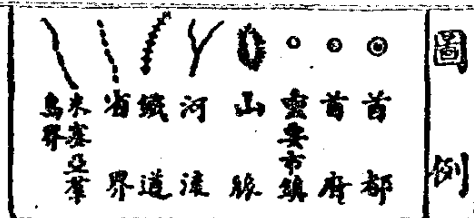 圖例
首都
首府
重要市鎮
山脈
河流
鐵道
省界
米塞亞羣
島界